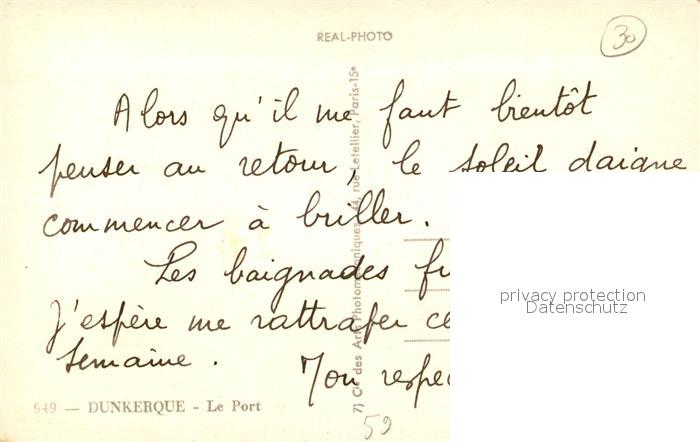 REAL-PHOTO
30
Alors qu'il me faut bientôt
penser au retour, le soleil daigne
commencer à briller.
Les baignades fu
J'espère me rattraper ce
semaine.
Mon respec
949 — DUNKERQUE - Le Port
59
7) Cie des Arts Photomécaniques, 44, rue Letellier, Paris-15e
privacy protection
Datenschutz